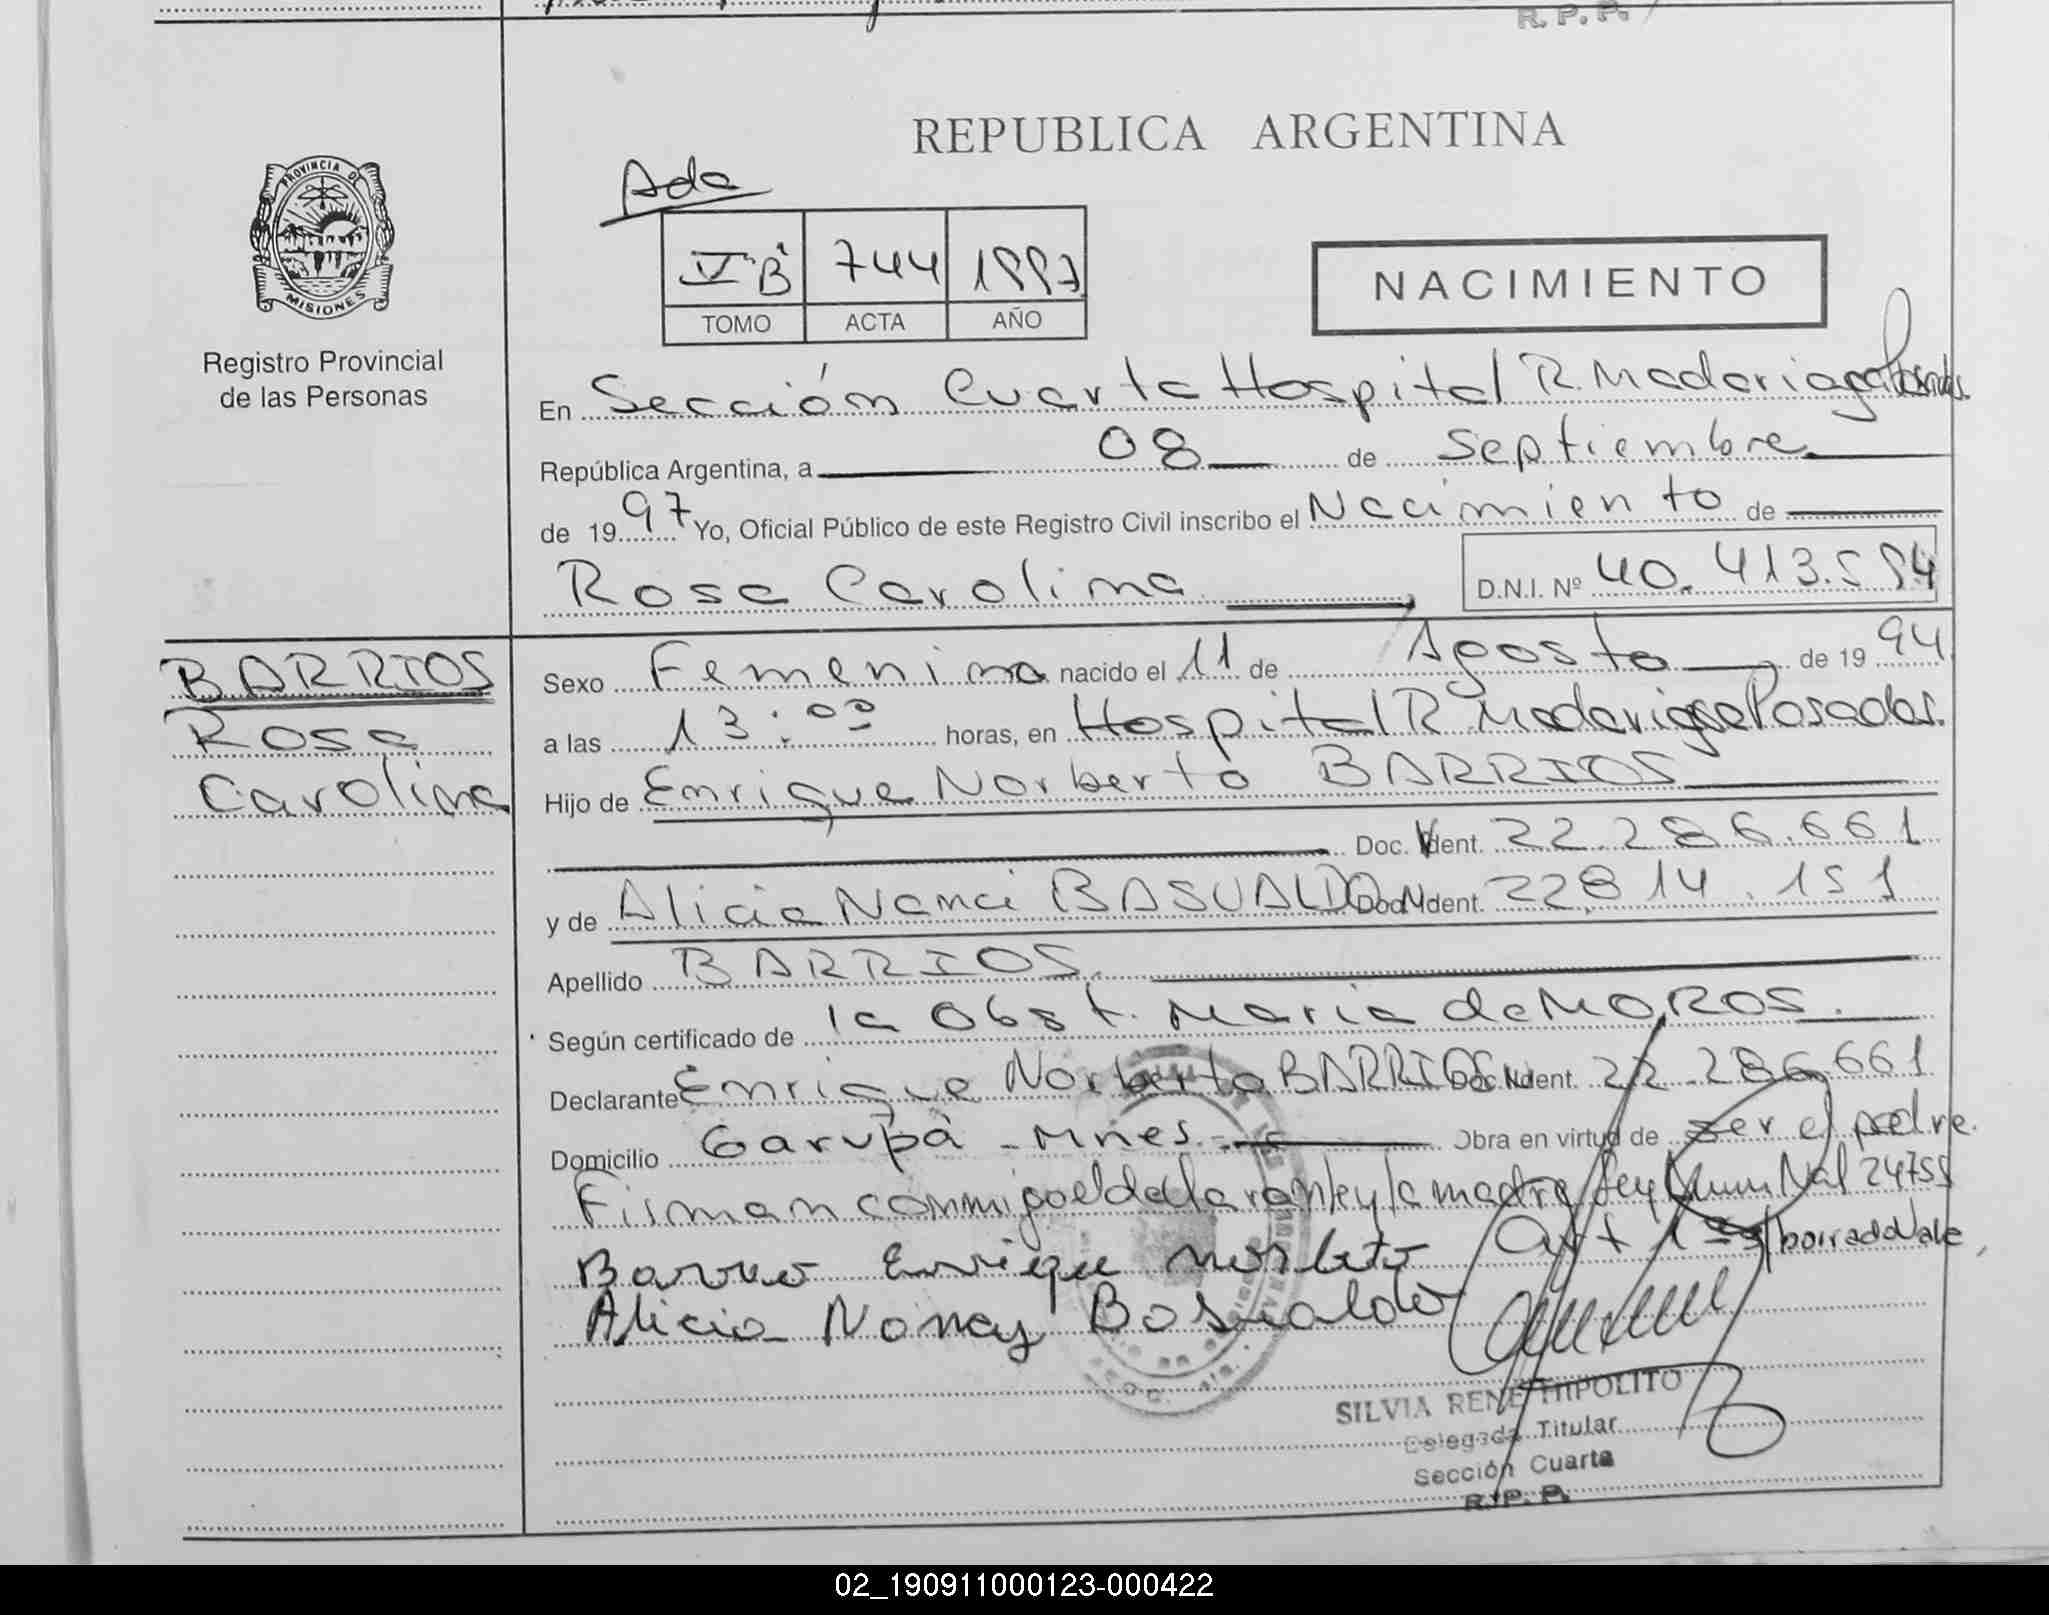 R. P. P.
REPUBLICA ARGENTINA
PROVINCIA DE
MISIONES
Registro Provincial
de las Personas
Ada
V B 744 1997
TOMO ACTA AÑO
NACIMIENTO
En Sección Cuarta Hospital R. Madariaga Posadas.
República Argentina, a 08 de Septiembre
de 1997 Yo, Oficial Público de este Registro Civil inscribo el Nacimiento de
Rosa Carolina D.N.I. Nº 40.413.594
BARRIOS
Rosa
Carolina
Sexo Femenino nacido el 11 de Agosto de 1994
a las 13:00 horas, en Hospital R Madariaga Posadas.
Hijo de Enrique Norberto BARRIOS
Doc. Ident. 22.286.661
y de Alicia Nanci BASUALDO Doc. Ident. 22.814.151
Apellido BARRIOS.
Según certificado de la Obst. Maria de MOROS.
Declarante Enrique Norberto BARRIOS Doc. Ident. 22.286.661
Domicilio Garupá - Mnes. - Obra en virtud de ser el padre.
Firman conmigo el declarante y la madre Ley Nal 24755
art 1 borrado Vale,
Barrio Enrique Norberto
Alicia Noncy Bosualdo
SILVIA RENE HIPOLITO
Delegada Titular
Sección Cuarta
R. P. P.
02_190911000123-000422